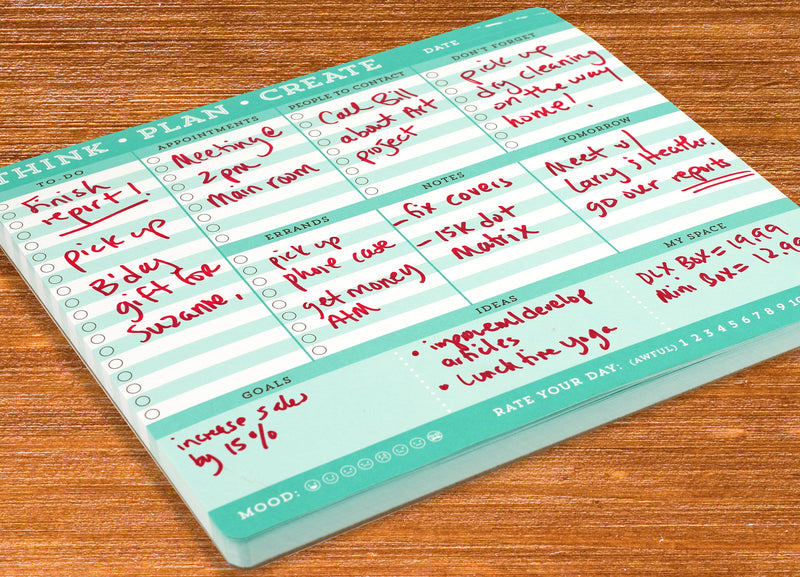 THINK • PLAN • CREATE
DATE
TO-DO
Finish
repirt!
pick up
B'day
gift for
Suzanne,
APPOINTMENTS
Meeting @
2 pm
main room
PEOPLE TO CONTACT
Call Bill
about Art
project
DON'T FORGET
Pick up
dry cleaning
on the way
home!
ERRANDS
pick up
phone case
get money
ATM
NOTES
- fix covers
- 15K dot
Matrix
TOMORROW
Meet w/
Larry & Heather.
go over reports
GOALS
increase sales
by 15%
IDEAS
• improvement/develop
articles
• Lunch time yoga
MY SPACE
DLX Box = 19.99
Mini Box = 12.99
MOOD:
RATE YOUR DAY: (AWFUL) 1 2 3 4 5 6 7 8 9 10